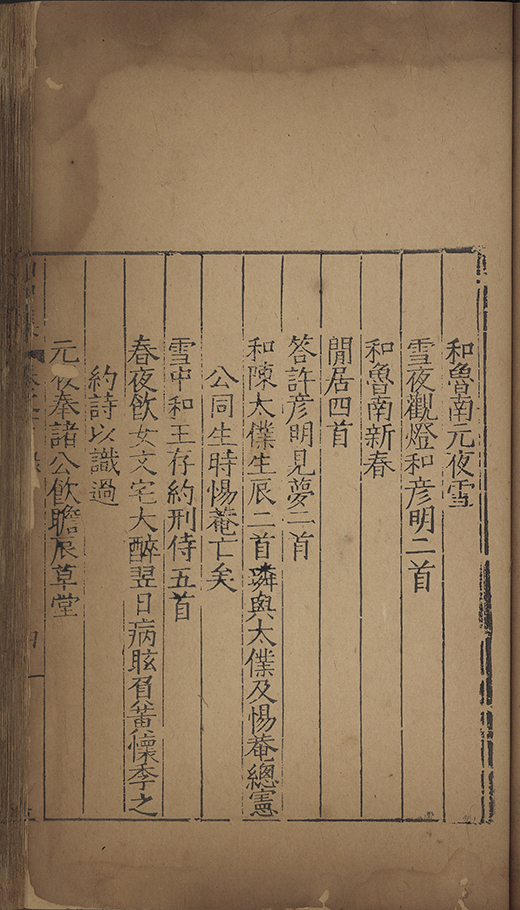 和魯南元夜雪
雪夜觀燈和彥明二首
和魯南新春
閒居四首
答許彥明見夢二首
和陳太僕生辰二首璘與太僕及惕菴總憲
公同生時惕菴亡矣
雪中和王存約刑侍五首
春夜飲女文宅大醉翌日病眩負黃懷季之
約詩以識過
元夜奉諸公飲瞻辰草堂